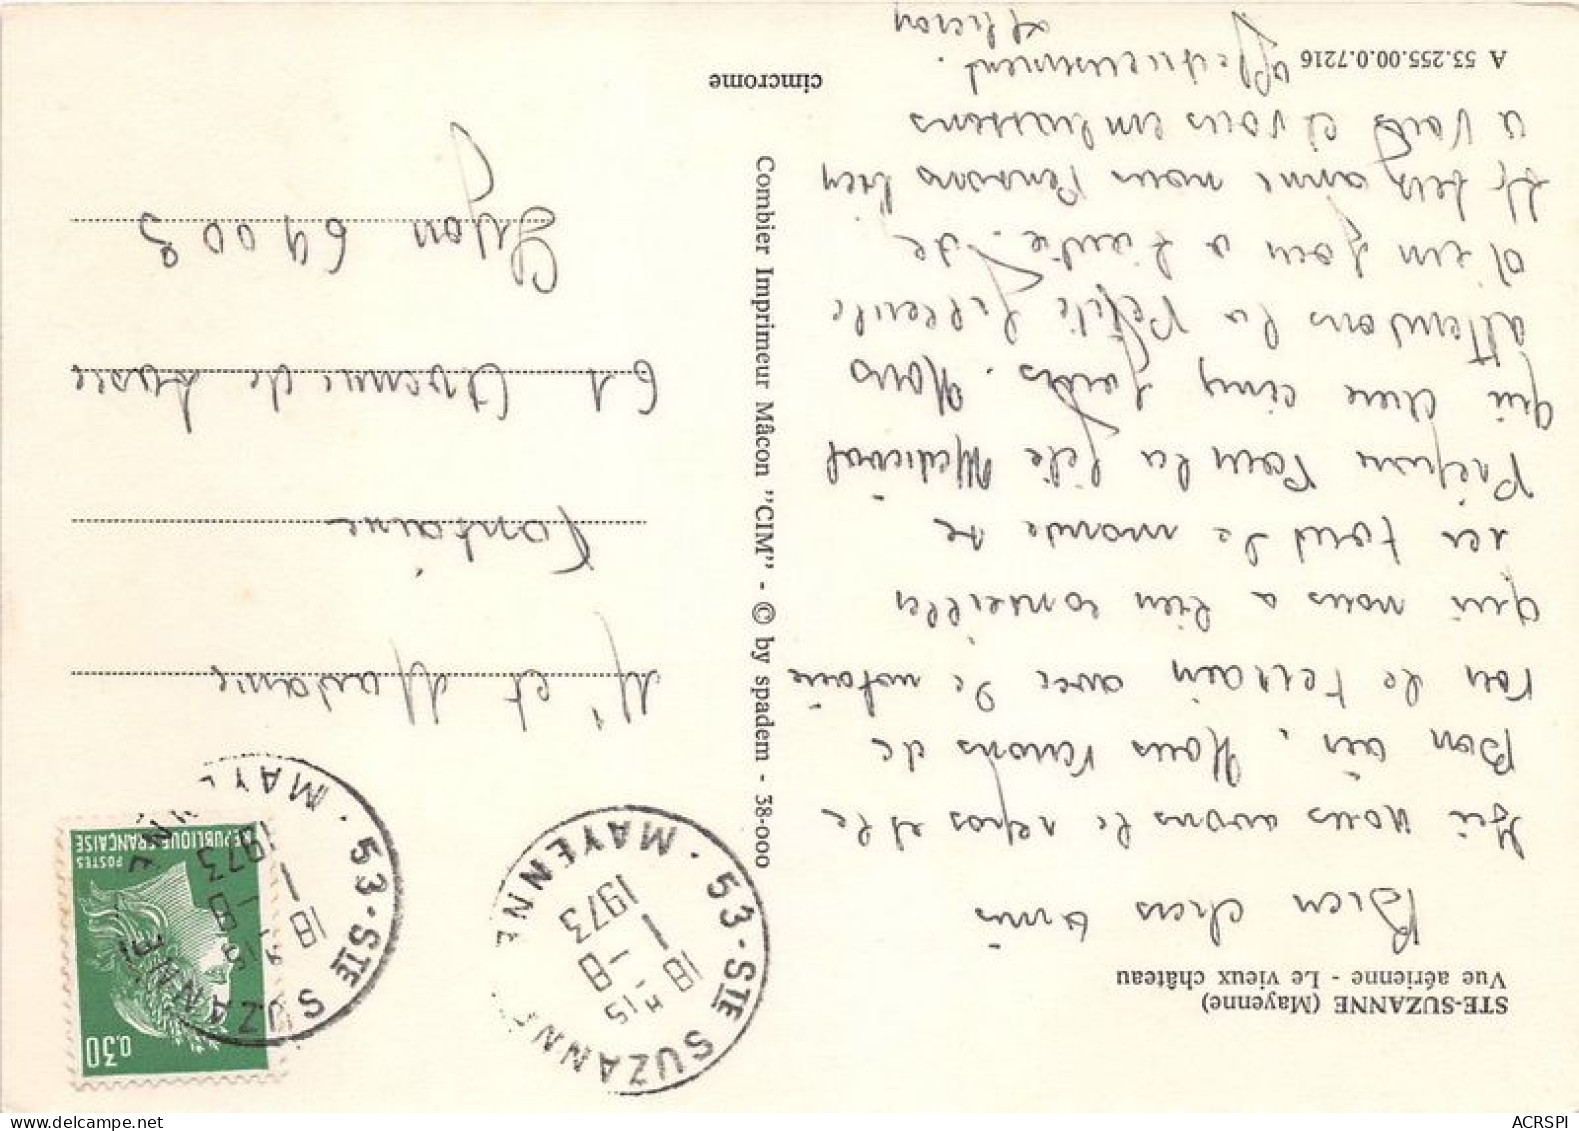 STE-SUZANNE (Mayenne)
Vue aérienne - Le vieux château
Bien chers amis
Ici nous avons le repos et le
Bon air. Nous venons de
voir le terrain avec le notaire
qui nous a bien conseiller
tout le monde se
Prépare Pour la fête Medieval
qui dure cinq jours. Nous
attendons la Petite
d'un jour a l'autre. de
nous Pensons bien
a vous et vous embrassons
affectueusement.
A 53.255.00.0.7216
cimcrome
Combier Imprimeur Mâcon "CIM" - © by spadem - 38-000
Mr et Madame
Fontaine
61 Avenue de
Lyon 69003
53-STE SUZANNE · MAYENNE
18 H 15
1 -8
1973
53-STE SUZANNE · MAYENNE
18 H 15
1 -8
1973
REPUBLIQUE FRANÇAISE
POSTES
0,30
ACRSPI